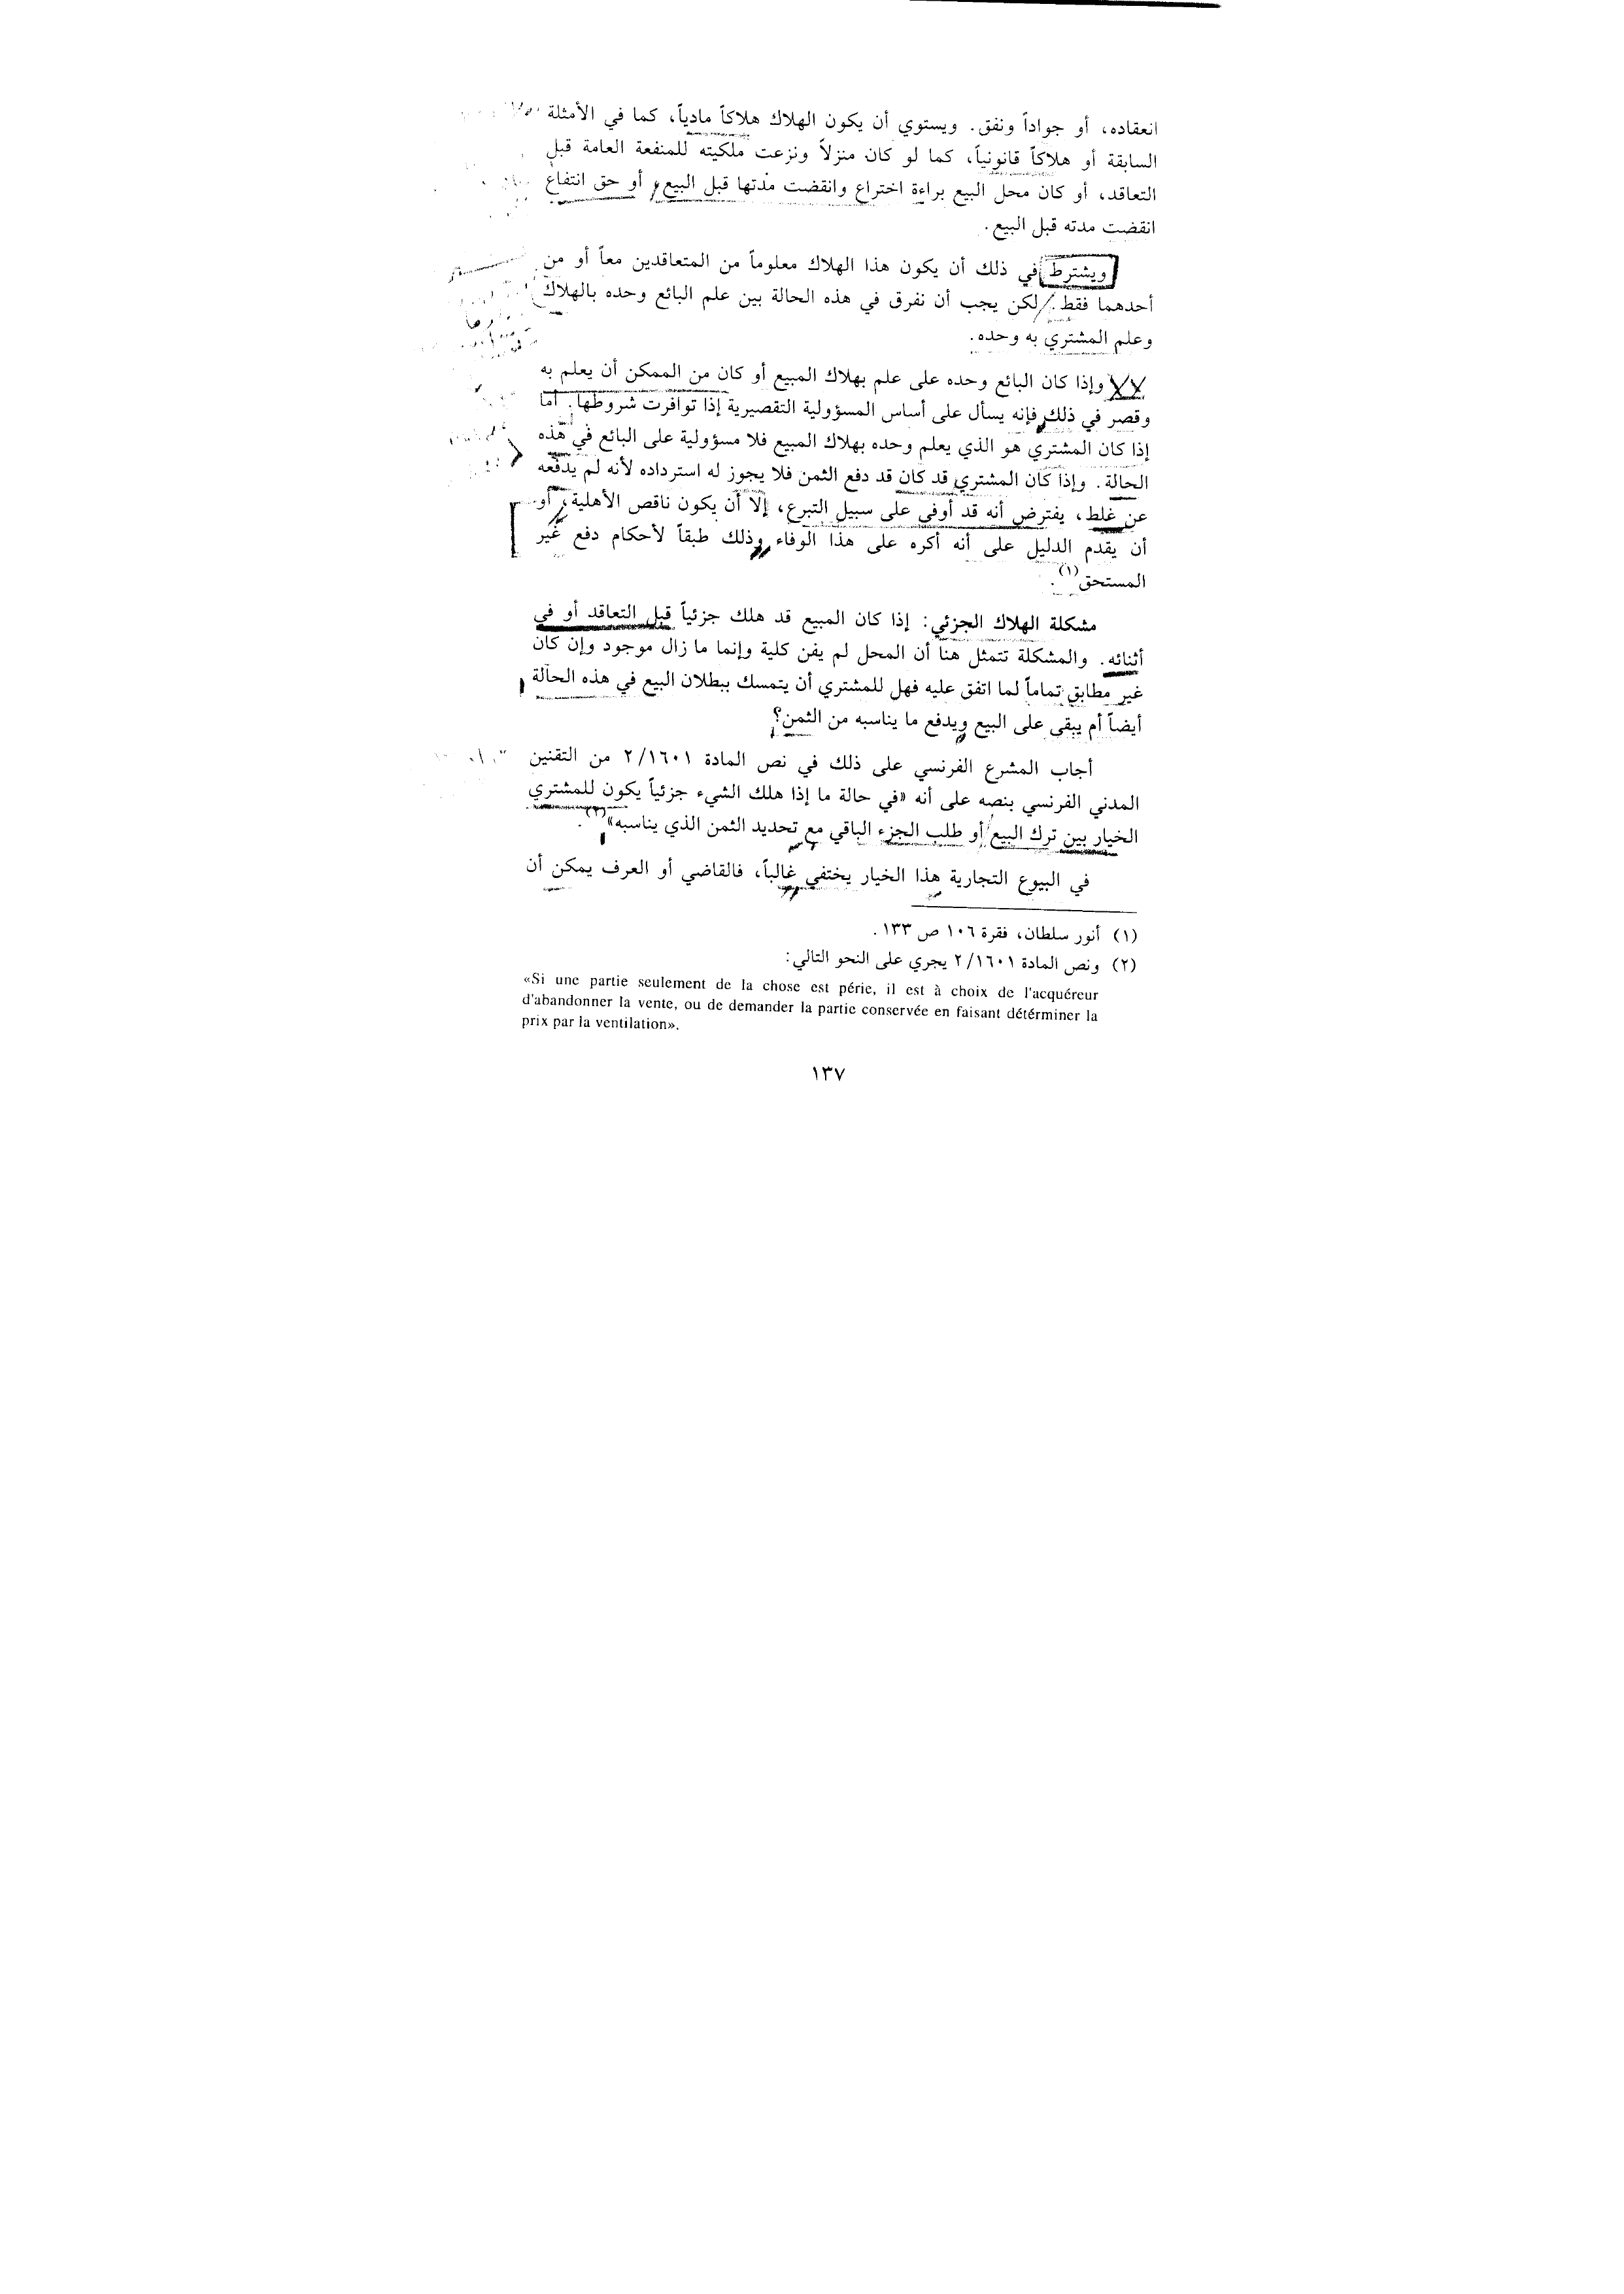 انعقاده، أو جواداً ونفق. ويستوي أن يكون الهلاك هلاكاً مادياً، كما في الأمثلة
السابقة أو هلاكاً قانونياً، كما لو كان منزلاً ونزعت ملكيته للمنفعة العامة قبل
التعاقد، أو كان محل البيع براءة اختراع وانقضت مدتها قبل البيع، أو حق انتفاع
انقضت مدته قبل البيع.
ويشترط في ذلك أن يكون هذا الهلاك معلوماً من المتعاقدين معاً أو من
أحدهما فقط. لكن يجب أن نفرق في هذه الحالة بين علم البائع وحده بالهلاك
وعلم المشتري به وحده.
وإذا كان البائع وحده على علم بهلاك المبيع أو كان من الممكن أن يعلم به
وقصر في ذلك فإنه يسأل على أساس المسؤولية التقصيرية إذا توافرت شروطها. أما
إذا كان المشتري هو الذي يعلم وحده بهلاك المبيع فلا مسؤولية على البائع في هذه
الحالة. وإذا كان المشتري قد كان قد دفع الثمن فلا يجوز له استرداده لأنه لم يدفعه
عن غلط، يفترض أنه قد أوفى على سبيل التبرع، إلا أن يكون ناقص الأهلية، أو
أن يقدم الدليل على أنه أكره على هذا الوفاء وذلك طبقاً لأحكام دفع غير
المستحق(١).
مشكلة الهلاك الجزئي: إذا كان المبيع قد هلك جزئياً قبل التعاقد أو في
أثنائه. والمشكلة تتمثل هنا أن المحل لم يفن كلية وإنما ما زال موجود وإن كان
غير مطابق تماماً لما اتفق عليه فهل للمشتري أن يتمسك ببطلان البيع في هذه الحالة
أيضاً أم يبقى على البيع ويدفع ما يناسبه من الثمن؟
أجاب المشرع الفرنسي على ذلك في نص المادة ٢/١٦٠١ من التقنين
المدني الفرنسي بنصه على أنه «في حالة ما إذا هلك الشيء جزئياً يكون للمشتري
الخيار بين ترك البيع أو طلب الجزء الباقي مع تحديد الثمن الذي يناسبه»(٢).
في البيوع التجارية هذا الخيار يختفي غالباً، فالقاضي أو العرف يمكن أن
(١) أنور سلطان، فقرة ١٠٦ ص ١٣٣.
(٢) ونص المادة ٢/١٦٠١ يجري على النحو التالي:
«Si une partie seulement de la chose est périe, il est à choix de l'acquéreur
d'abandonner la vente, ou de demander la partie conservée en faisant détérminer la
prix par la ventilation».
١٣٧